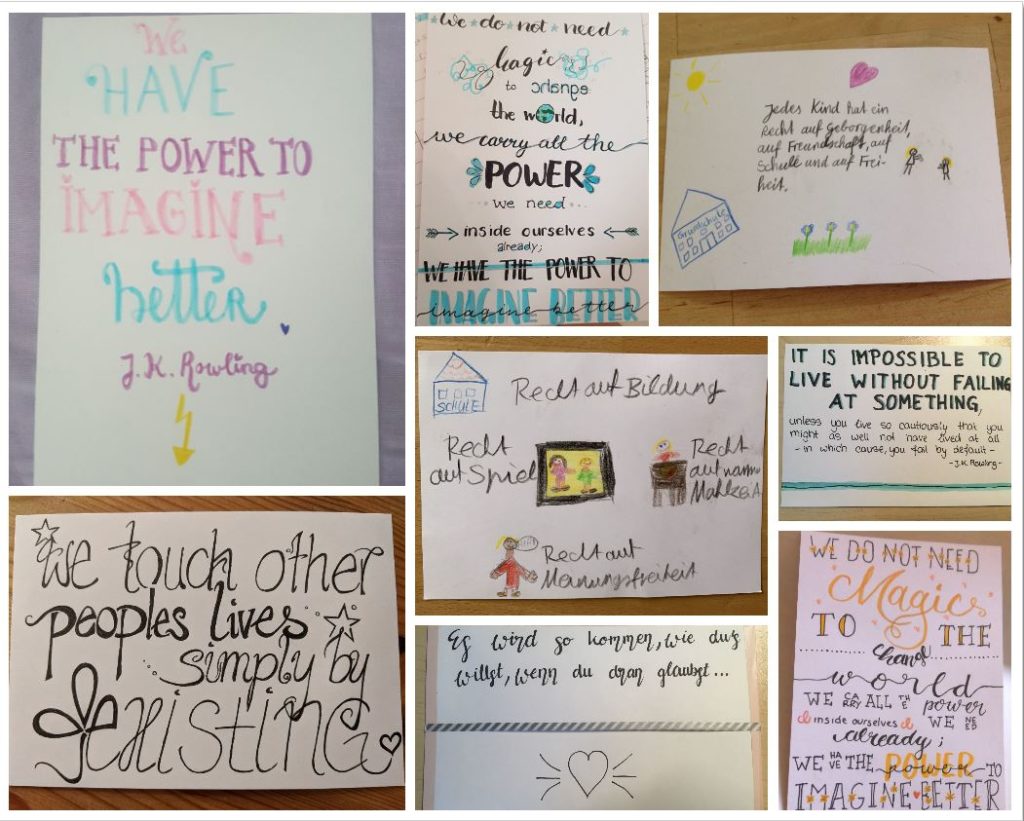 We
HAVE
THE POWER TO
IMAGINE
better
J.K. Rowling
We do not need
magic
to change
the world,
we carry all the
POWER
we need
inside ourselves
already;
WE HAVE THE POWER TO
IMAGINE BETTER
imagine better
Jedes Kind hat ein
Recht auf Geborgenheit,
auf Freundschaft, auf
Schule und auf Frei-
heit.
Grundschule
SCHULE
Recht auf Bildung
Recht
auf Spiel
Recht
auf warme
Mahlzeit
Recht auf
Meinungsfreiheit
IT IS IMPOSSIBLE TO
LIVE WITHOUT FAILING
AT SOMETHING,
unless you live so cautiously that you
might as well not have lived at all
- in which cause, you fail by default -
- J.K. Rowling -
we touch other
peoples lives
simply by
existing
Es wird so kommen, wie du's
willst, wenn du dran glaubst...
WE DO NOT NEED
Magic
TO THE
change
world
WE CARRY ALL THE power
inside ourselves WE NEED
already;
WE HAVE THE POWER TO
power
IMAGINE BETTER